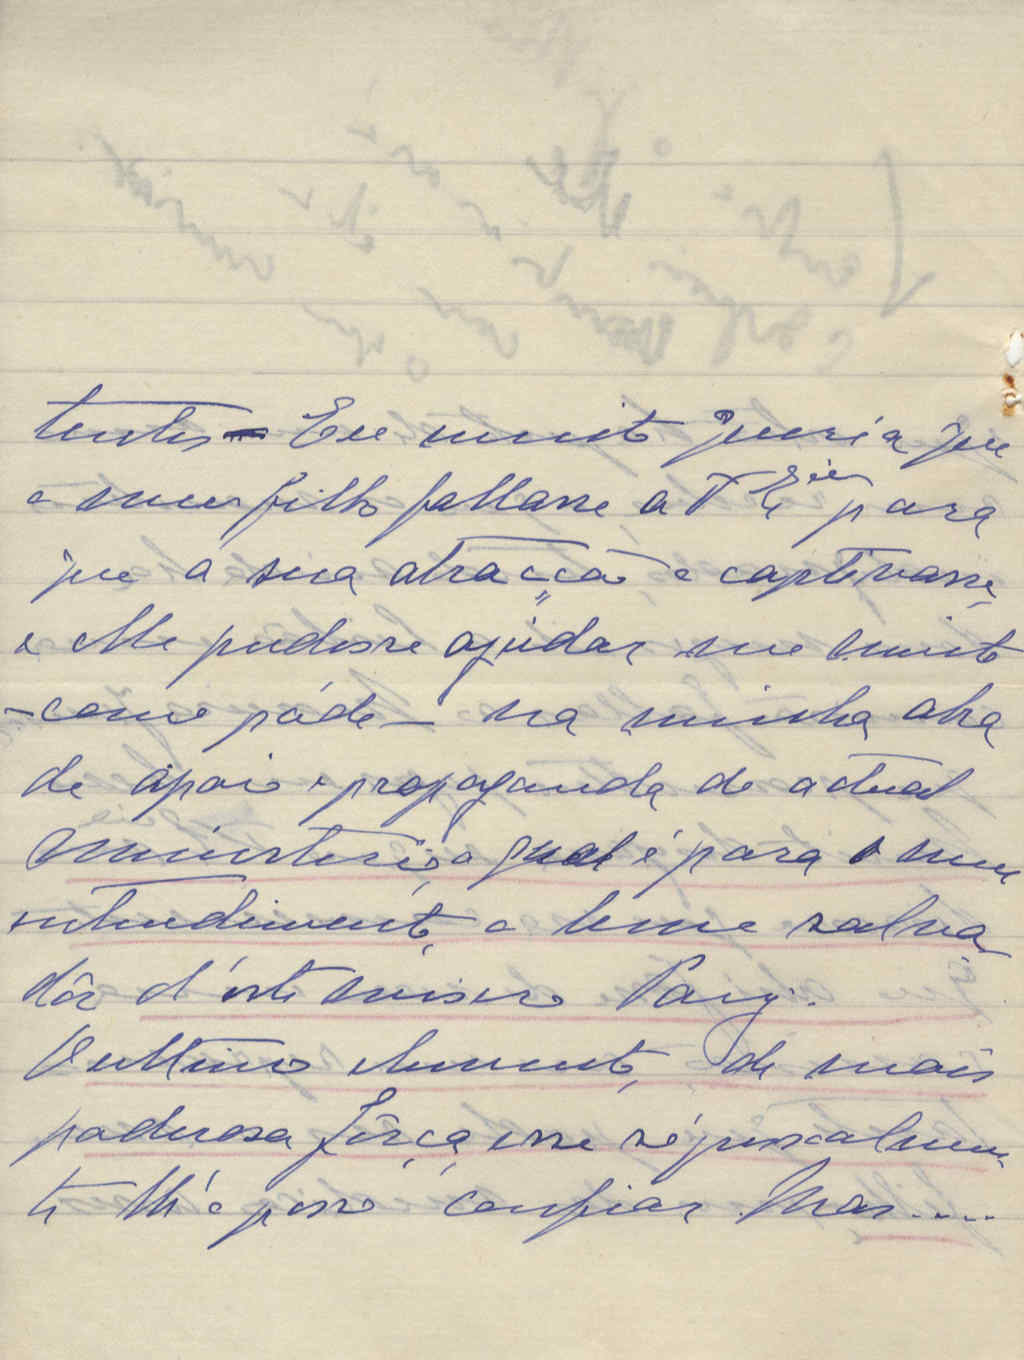 tentes - Eu muito queria que
o meu filho fallasse a V. Exᶜⁱᵃ para
que a sua atracção o captivasse,
e elle pudesse ajudar me muito
- como póde - na minha obra
de apoio e propaganda do actual
ministerio, o qual é para o meu
entendimento, o leme salva-
dôr d'este misero Paiz.
Outtimo elemento, de mais
poderosa fôrça, esse só pessoalmen
te lh'o posso confiar. Mas....